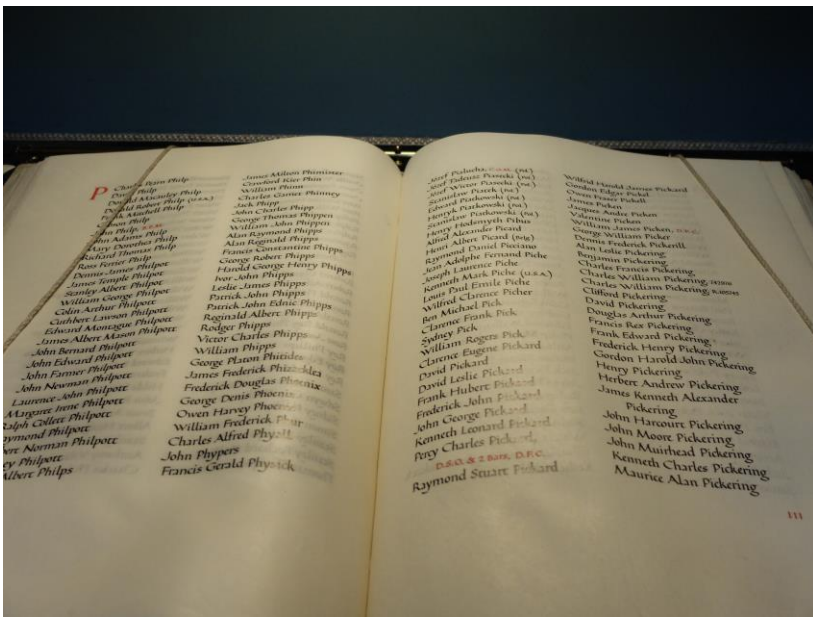 P
Philp
Philp
Macauley Philp
Robert Philp (U.S.A.)
Machell Philp
Philp
John Philp,
John Adams Philp
Mary Dorothea Philp
Richard Thomas Philp
Ross Ferrier Philp
Dennis James Philpot
James Temple Philpot
Stanley Albert Philpot
William George Philpot
Colin Arthur Philpott
Cuthbert Lawson Philpott
Edward Montague Philpott
James Albert Mason Philpott
John Bernard Philpott
John Edward Philpott
John Farmer Philpott
John Newman Philpott
Laurence John Philpott
Margaret Irene Philpott
Ralph Collett Philpott
Raymond Philpott
Norman Philpott
Philpott
Albert Philps
James Milton Phimister
Crawford Kier Phin
William Phinn
Charles Garnet Phinney
Jack Phipp
John Charles Phipp
George Thomas Phippen
William John Phippen
Alan Raymond Phipps
Alan Reginald Phipps
Francis Constantine Phipps
George Robert Phipps
Harold George Henry Phipps
Ivor John Phipps
Leslie James Phipps
Patrick John Phipps
Patrick John Ednic Phipps
Reginald Albert Phipps
Rodger Phipps
Victor Charles Phipps
William Phipps
George Platon Phitides
James Frederick Phizacklea
Frederick Douglas Phoenix
George Denis Phoenix
Owen Harvey Phoenix
William Frederick
Charles Alfred Phyall
John Phypers
Francis Gerald Physick
Józef Pialucha, (P.A.F.)
Józef Tadeusz Piasecki
Józef Wictor Piasecki
Stanisław Piasek
Edward Piatkowski
Henryk Piatkowski
Stanisław Piatkowski
Henry Hodsmyth Pibus
Alfred Alexander Picard
Henri Albert Picard
Raymond Daniel Picciano
Jean Adolphe Fernand Piche
Joseph Laurence Piche
Kenneth Mark Piche (U.S.A.)
Louis Paul Emile Piche
Wilfred Clarence Picher
Ben Michael Pick
Clarence Frank Pick
Sydney Pick
William Rogers Pick
Clarence Eugene Pickard
David Pickard
David Leslie Pickard
Frank Hubert Pickard
Frederick John Pickard
John George Pickard
Kenneth Leonard Pickard
Percy Charles Pickard,
D.S.O. & 2 Bars, D.F.C.
Raymond Stuart Pickard
Wilfrid Harold James Pickard
Gordon Edgar Pickel
Owen Fraser Pickell
James Picken
Jacques Andre Picken
Valentine Picken
William James Picken, D.F.C.
George William Picker
Dennis Frederick Pickerill
Alan Leslie Pickering
Benjamin Pickering
Charles Francis Pickering
Charles William Pickering,
Charles William Pickering,
Clifford Pickering
David Pickering
Douglas Arthur Pickering
Francis Rex Pickering
Frank Edward Pickering
Frederick Henry Pickering
Gordon Harold John Pickering
Henry Pickering
Herbert Andrew Pickering
James Kenneth Alexander
Pickering
John Harcourt Pickering
John Moore Pickering
John Muirhead Pickering
Kenneth Charles Pickering
Maurice Alan Pickering
111